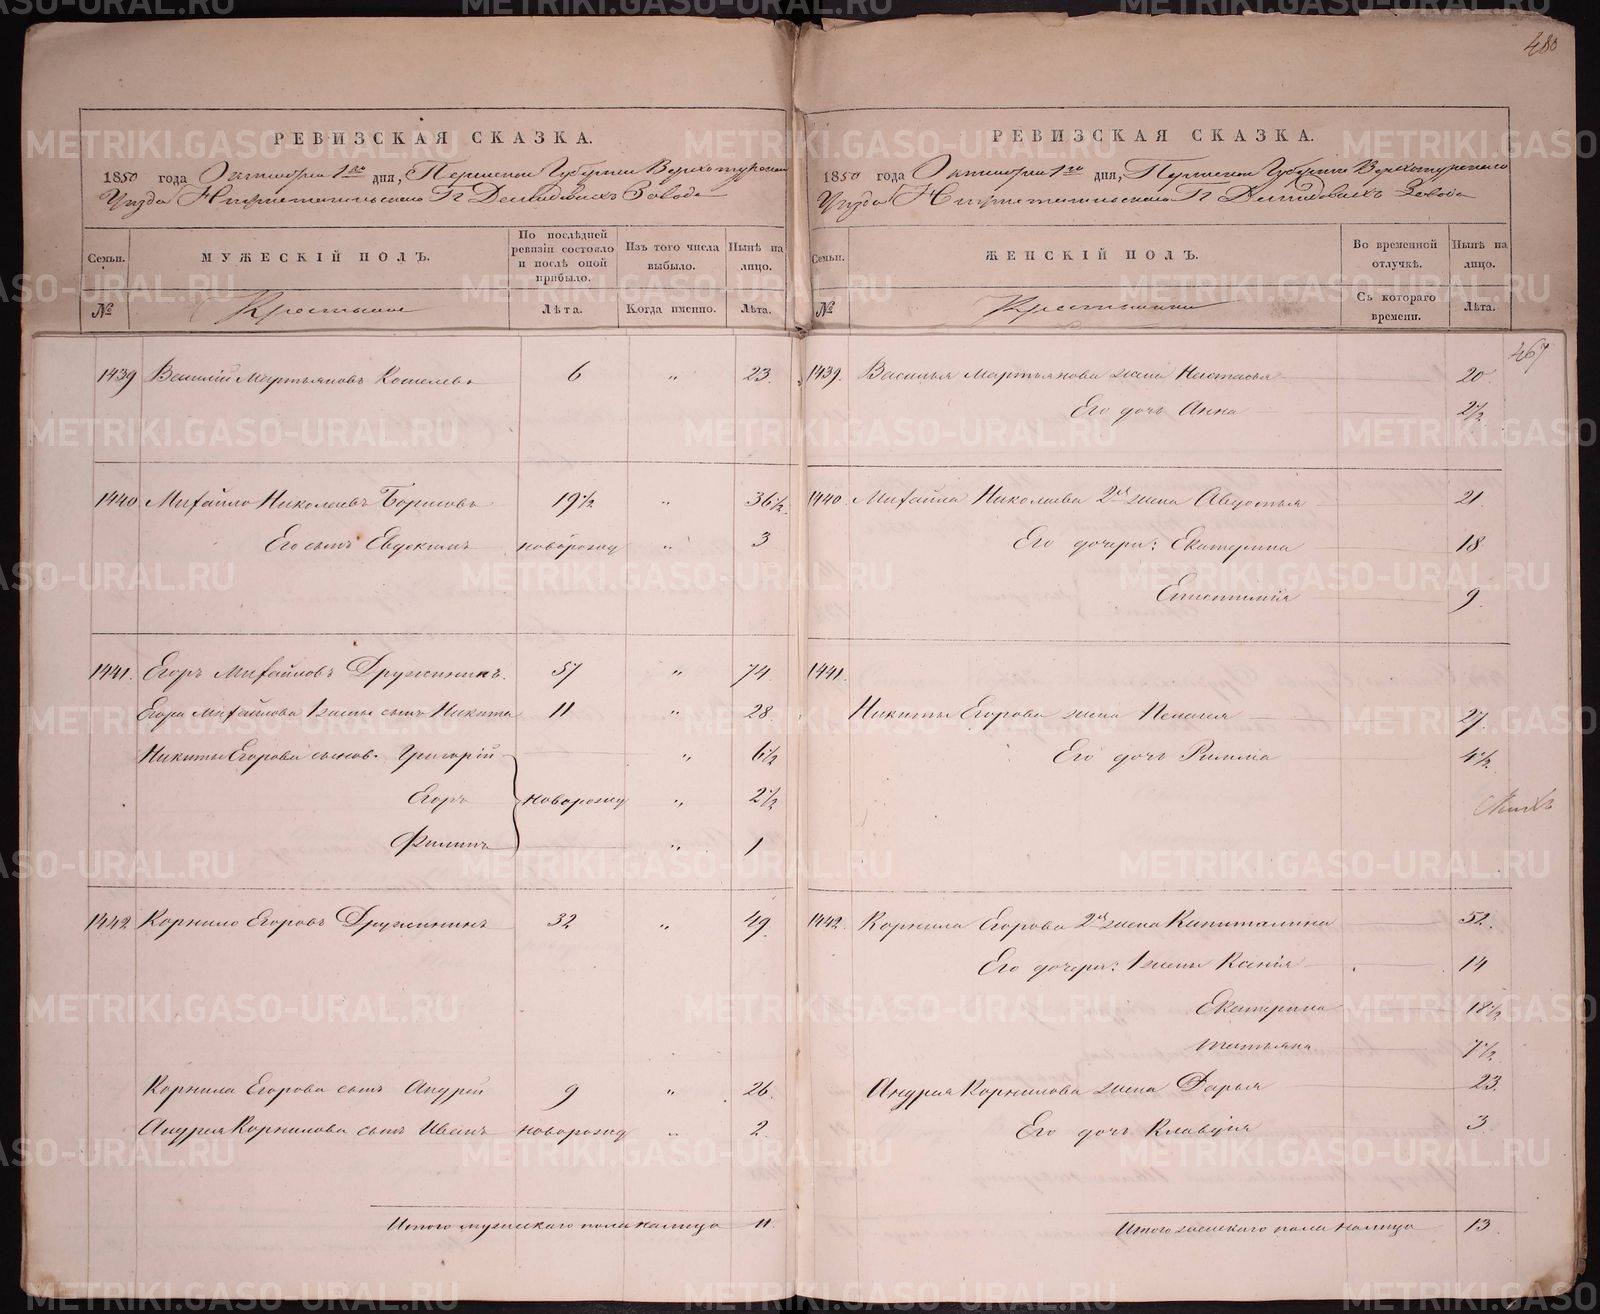 480
РЕВИЗСКАЯ СКАЗКА.
1850 года Октября 1го дня, Пермской Губернии Верхотурскаго
Уѣзда Нижнетагильскаго Гг Демидовыхъ Завода
Семьи. МУЖЕСКІЙ ПОЛЪ. По послѣдней ревизіи состояло и послѣ оной прибыло. Изъ того числа выбыло. Нынѣ на лицо.
№ Крестьяне Лѣта. Когда именно. Лѣта.
1439 Василій Мартьяновъ Кошелевъ 6 „ 23.
1440 Михайло Николаевъ Борисовъ 19½ „ 36½.
Его сынъ Евдокимъ новорожд „ 3
1441. Егоръ Михайловъ Дружининъ. 57 „ 74.
Егора Михайлова 1 жены сынъ Никита 11 „ 28.
Никиты Егорова сыновья Григорій „ 6½
Егоръ новорожд „ 2½
Филипъ „ 1
1442. Корнило Егоровъ Дружининъ 32 „ 49.
Корнила Егорова сынъ Андрей 9 „ 26.
Андрея Корнилова сынъ Иванъ новорожд „ 2.
Итого мужескаго пола налицо 11.
РЕВИЗСКАЯ СКАЗКА.
1850 года Октября 1го дня, Пермской Губерніи Верхотурскаго
Уѣзда Нижнетагильскаго Гг Демидовыхъ Завода
Семьи. ЖЕНСКІЙ ПОЛЪ. Во временной отлучкѣ. Нынѣ на лицо.
№ Крестьянки Съ котораго времени. Лѣта.
467
1439. Василья Мартьянова жена Настасья 20.
Его дочь Анна 2½
1440. Михайла Николаева 2я жена Авдотья 21.
Его дочери: Екатерина 18
Епистимія 9.
1441.
Никиты Егорова жена Пелагія 27.
Его дочь Римма 4½.
1442. Корнила Егорова 2я жена Капиталина 52.
Его дочери: 1 жены Ксенія 14
Екатерина 18½
Татьяна 7½.
Андрея Корнилова жена Дарья 23.
Его дочь Клавдія 3.
Итого женскаго пола налицо 13.
METRIKI.GASO-URAL.RU